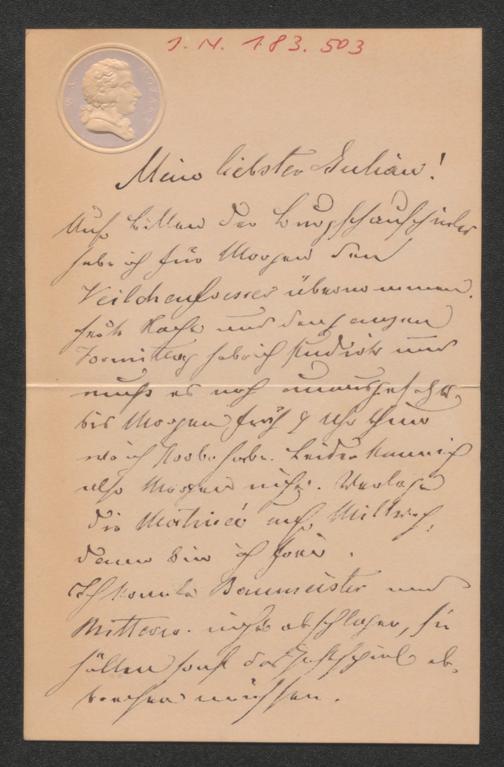 J. N. 183.503
Mein liebster Julian!
Auf Bitten der Burgschauspieler
habe ich für Morgen den
Veilchenfresser übernommen.
Nacht und den ganzen
Vormittag hab ich studirt und
muß es noch unausgesetzt
bis Morgen früh 9 Uhr thun
wo ich Probe habe. Leider kann ich
also Morgen nicht. Verlege
die Matinée auf Mittwoch,
dann bin ich frei.
Ich konnte Baumeister und
Mitterw. nicht abschlagen, sie
hätten sonst das Gastspiel ab-
brechen müssen.